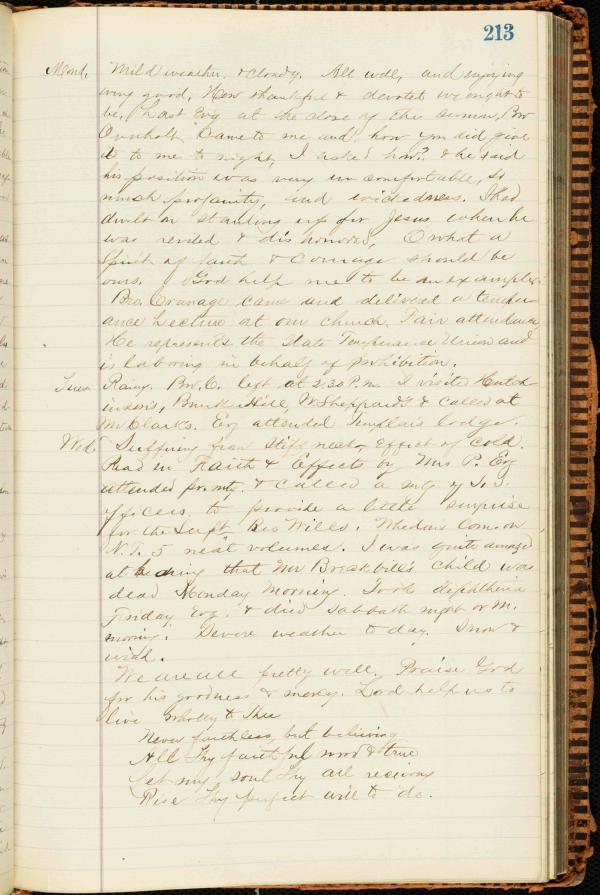 213
Mond, Mild weather, & cloudy. All well, and enjoying
very good. How thankful & devoted we ought to
be. Last Evg at the close of the sermon, Bro
Overholt came to me and how you did give
it to me to night, I asked how? & he said
his position was very uncomfortable, so
much profanity, and wickedness. I had
dwelt on standing up for Jesus when he
was reviled & dishonored, O what a
Spirit of faith & Courage should be
ours. God help me to be an example.
Bro. Cranage came and delivered a temper-
ance Lecture at our church. Fair attendance,
He represents the State Temperance Union and
is laboring in behalf of Prohibition.
Tues Rainy. Bro. C. left at 2:30 P.m. I visited Hutch-
inson's, Bunker Hill, W Sheppard's & called at
Mr Clark's. Evg attended Templars lodge.
Wed. Suffering from stiff neck, effect of cold.
Read in Faith & Effects by Mrs P. Evg
attended pr. mtg. & called a mtg of S.S.
officers, to provide a little surprise
for the Supt Bro Wills. Whedon's Com. on
N.T. 5 neat volumes. I was quite amazed
at hearing that Mr Brockbill's child was
dead Monday Morning. Took diphtheria
Friday Evg. & died Sabbath night or M.
morning. Severe weather to day. Snow &
wind.
We are all pretty well. Praise God
for his goodness & mercy. Lord help us to
live wholly to Thee
Never faithless, but believing
All Thy faithful word & true
Let my soul Thy all receiving
Rise Thy perfect will to do.